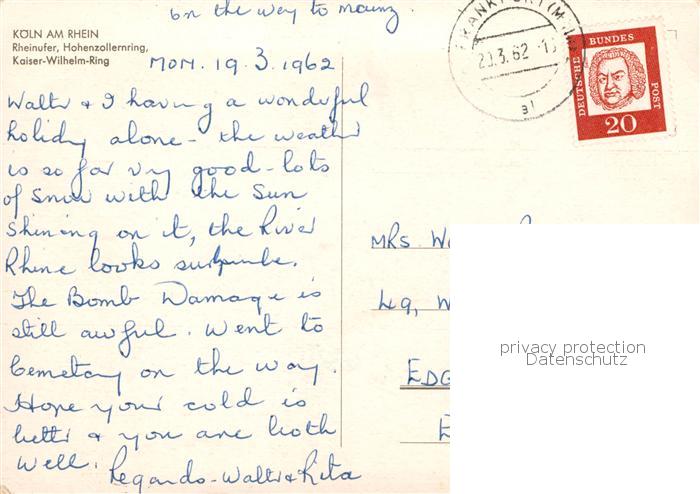 on the way to mainz.
KÖLN AM RHEIN
Rheinufer, Hohenzollernring,
Kaiser-Wilhelm-Ring
MON. 19.3.1962
Walter & I having a wonderful
holiday alone - the weather
is so far very good - lots
of snow with the sun
shining on it, the River
Rhine looks
The Bomb Damage is
still awful. Went to
Cemetary on the way.
Hope your cold is
better & you are both
well. Regards - Walter & Rita
FRANKFURT (MAIN)
20.3.62
DEUTSCHE BUNDES POST
20
MRS
49, W
EDG
privacy protection
Datenschutz